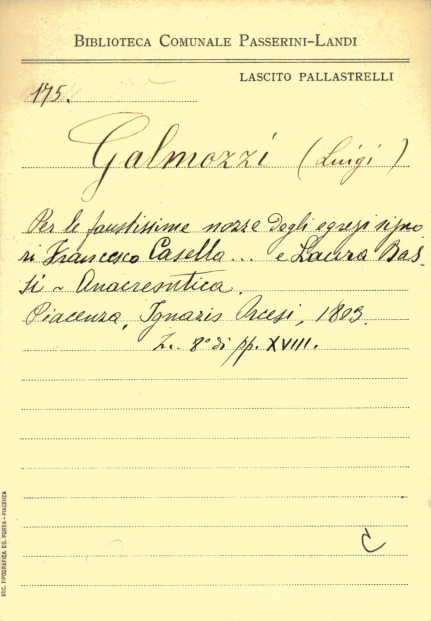 BIBLIOTECA COMUNALE PASSERINI-LANDI
LASCITO PALLASTRELLI
175.
Galmozzi (Luigi)
Per le faustissime nozze degli egregi signo
ri Francesco Casella... e Laura Bas-
si ~ Anacreontica.
Piacenza, Ignazio Orcesi, 1803.
8° di pp. XVIII.
C
SOC. TIPOGRAFICA ED. PORTA - PIACENZA